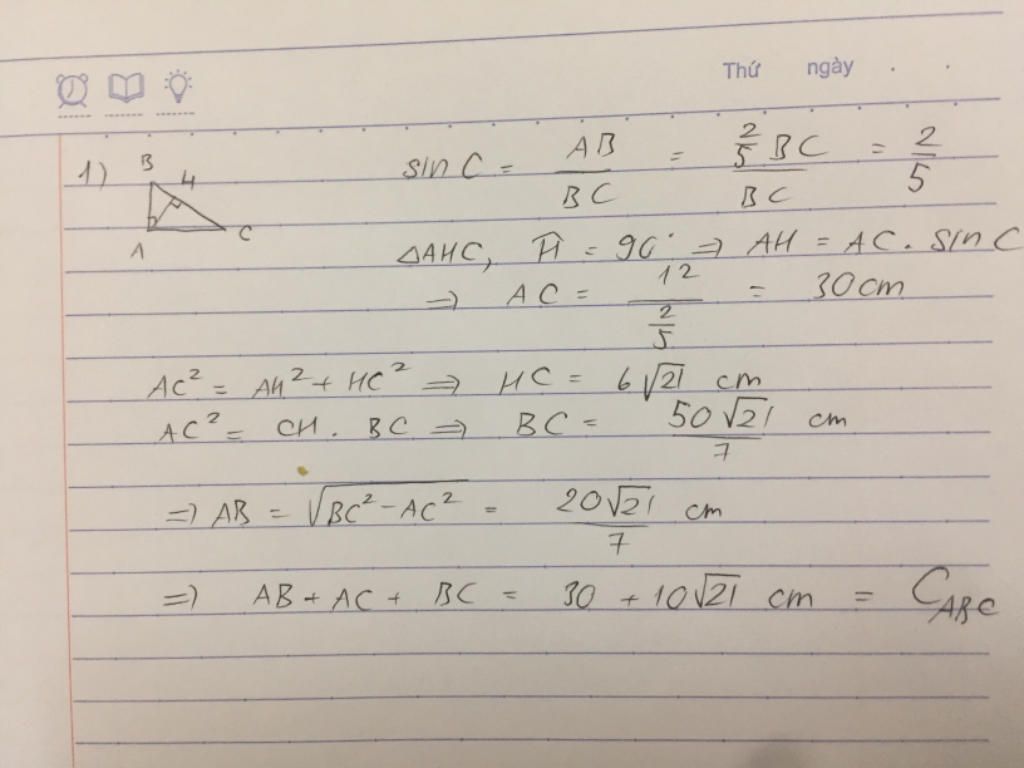 Thứ ngày
1) B H A C
sin C = AB / BC = 2/5 BC / BC = 2/5
△AHC, Ĥ = 90° ⇒ AH = AC . sin C
⇒ AC = 12 / (2/5) = 30 cm
AC² = AH² + HC² ⇒ HC = 6√21 cm
AC² = CH . BC ⇒ BC = 50√21 / 7 cm
⇒ AB = √(BC² - AC²) = 20√21 / 7 cm
⇒ AB + AC + BC = 30 + 10√21 cm = C_ABC